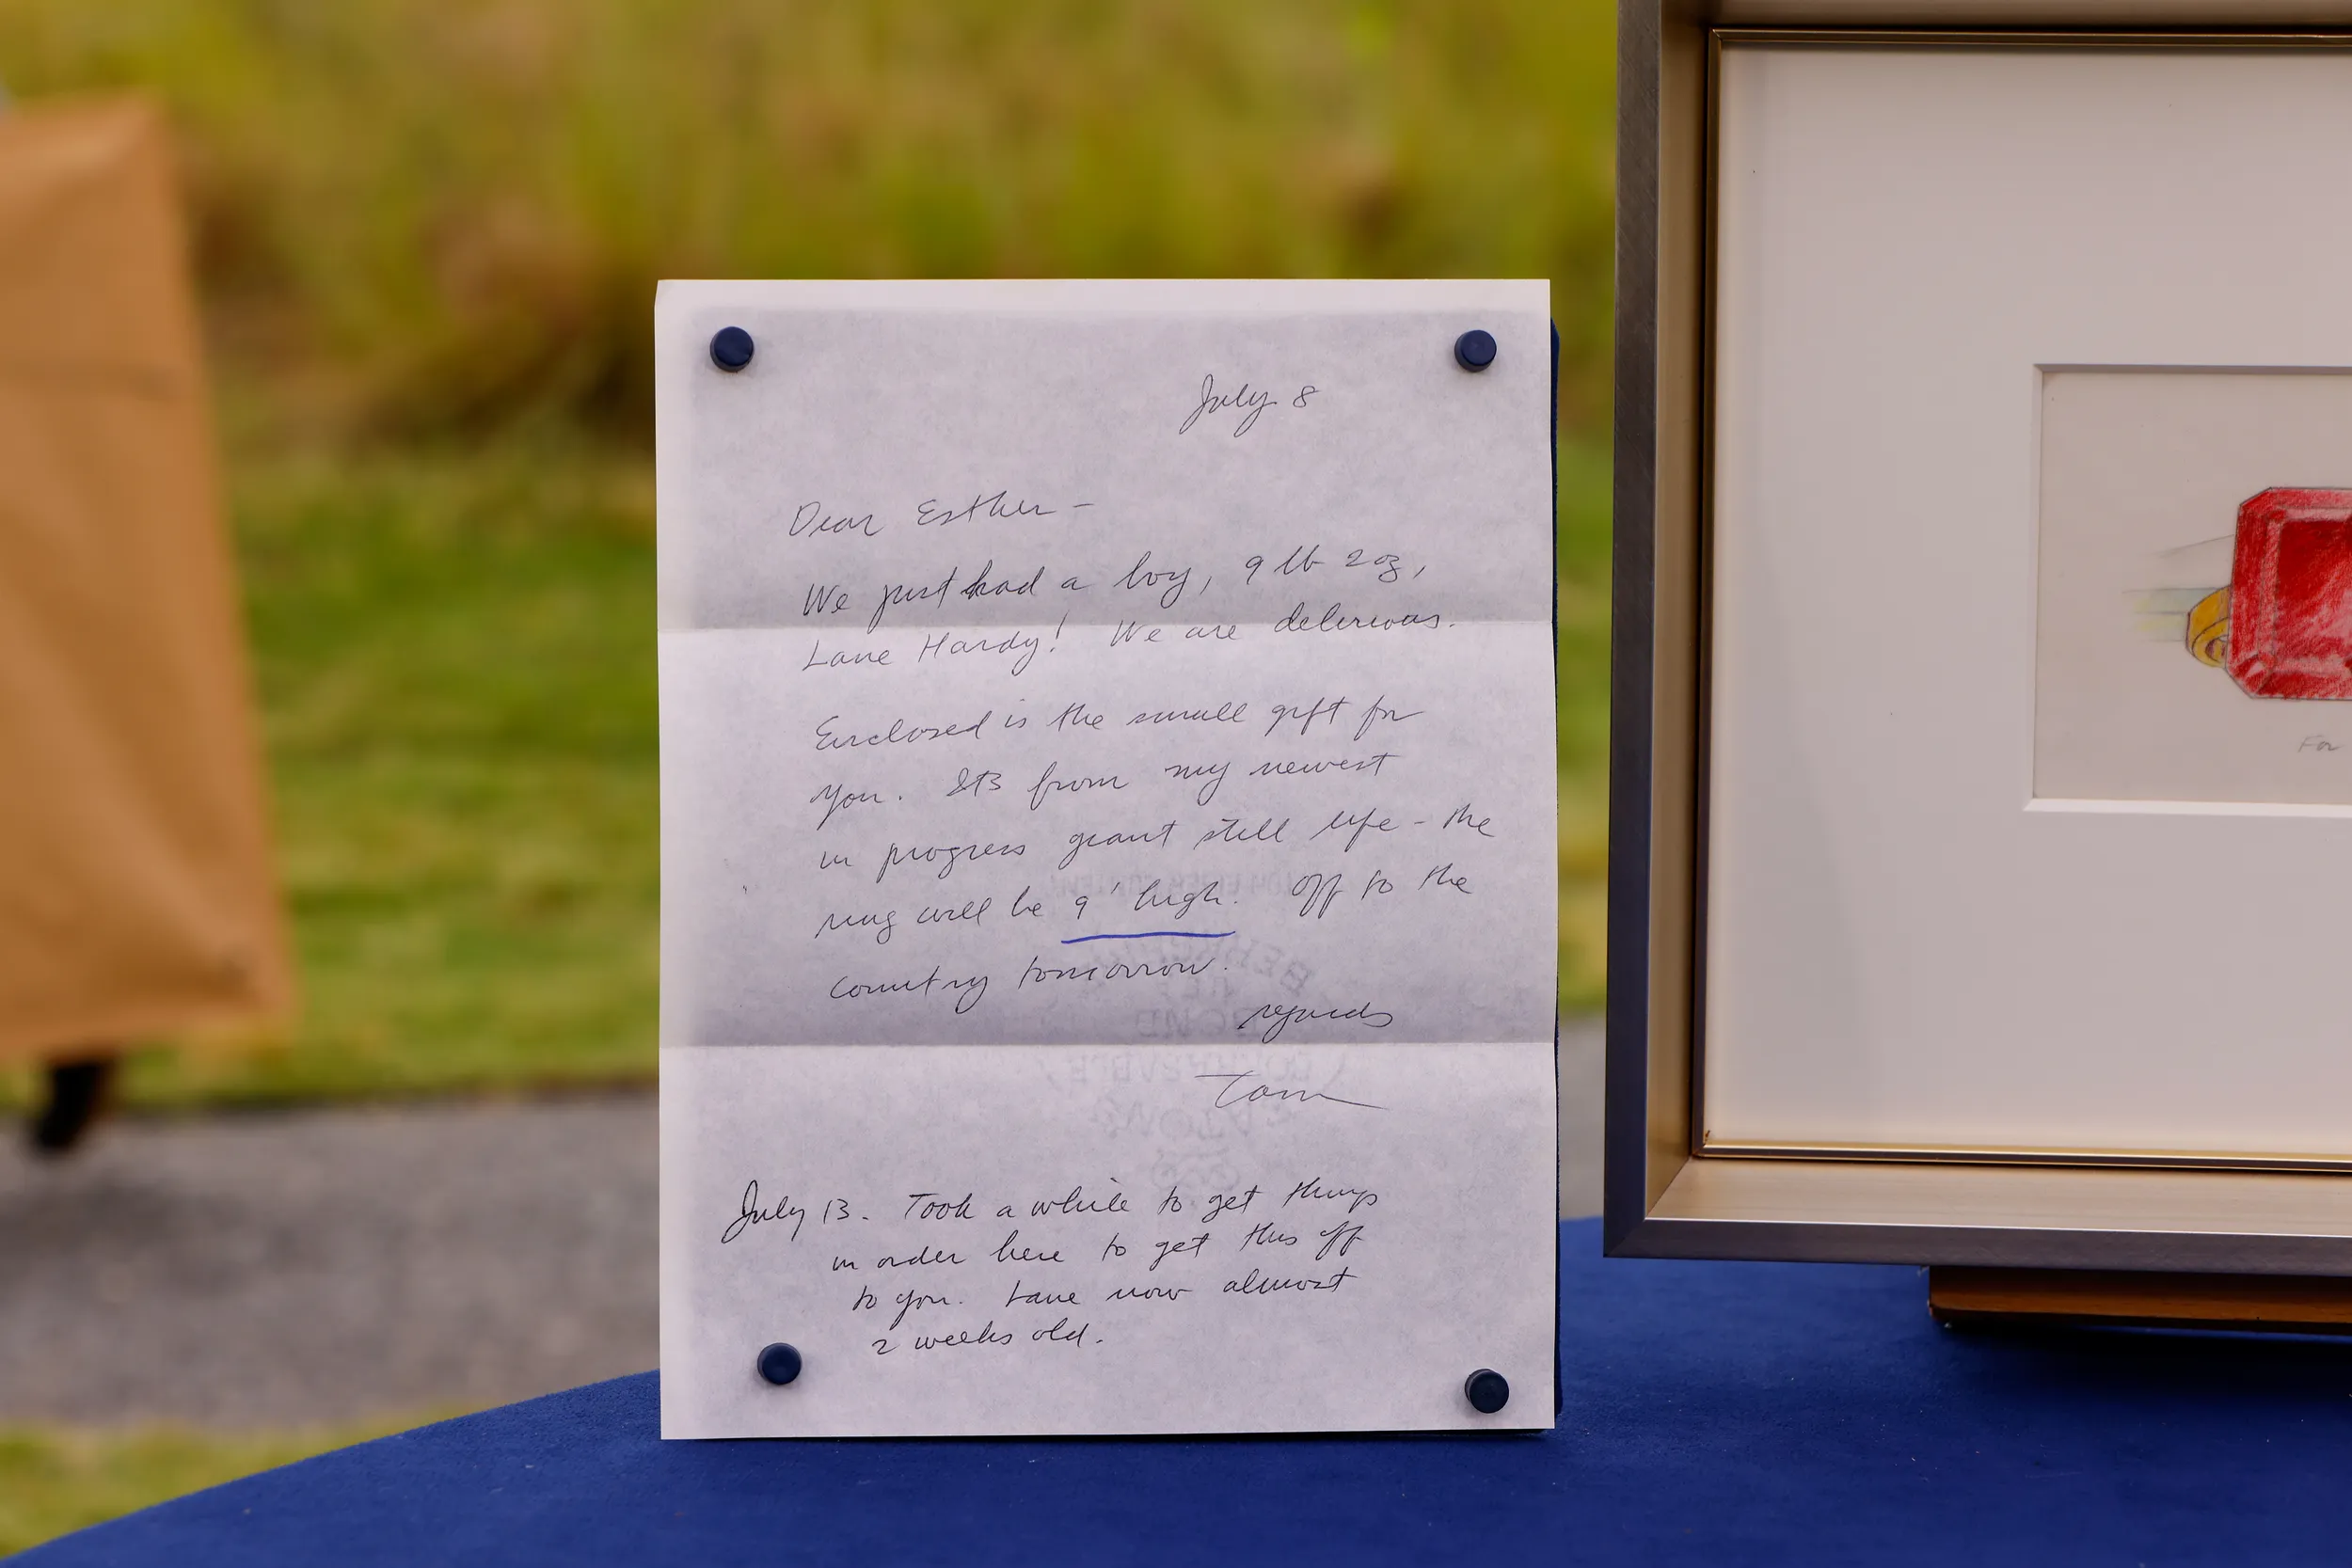 July 8
Dear Esther –
We just had a boy, 9 lb 2 oz,
Lane Hardy! We are delerious.
Enclosed is the small gift for
you. It's from my newest
in progress giant still life – the
ring will be 9' high. Off to the
country tomorrow.
regards
Tom
July 13. Took a while to get things
in order here to get this off
to you. Lane now almost
2 weeks old.
For